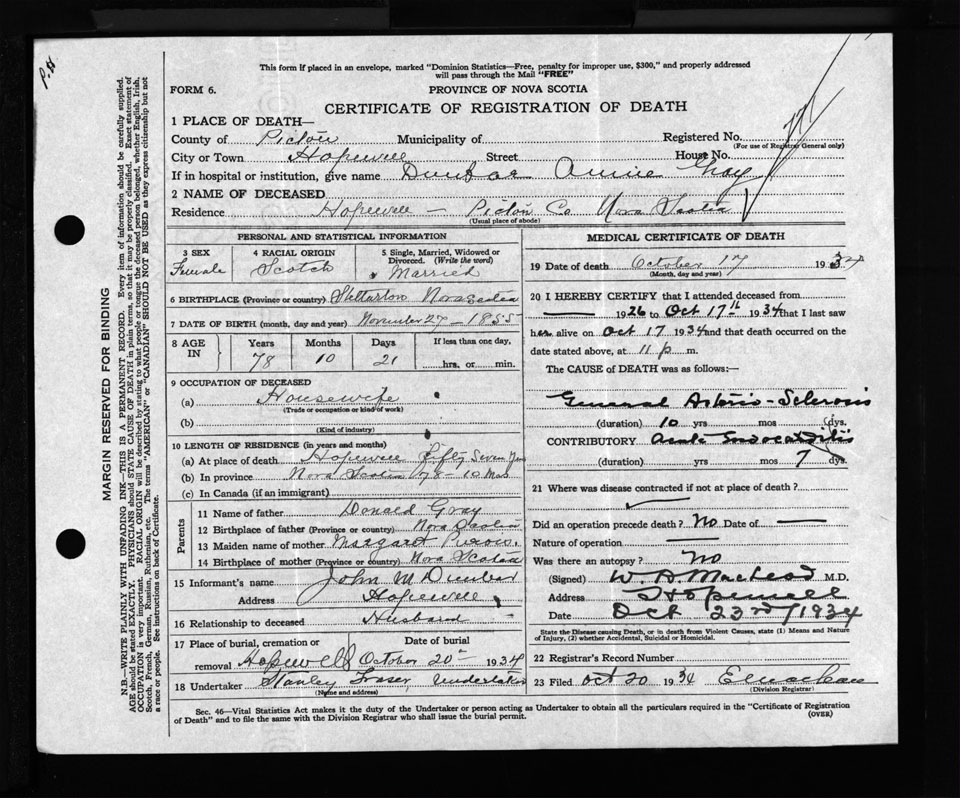 P.H
This form if placed in an envelope, marked "Dominion Statistics—Free, penalty for improper use, $300," and properly addressed
will pass through the Mail "FREE"
FORM 6.
PROVINCE OF NOVA SCOTIA
CERTIFICATE OF REGISTRATION OF DEATH
1 PLACE OF DEATH—
County of Pictou Municipality of Registered No.
(For use of Registrar General only)
City or Town Hopewell Street House No.
If in hospital or institution, give name Dunbar Annie Gray
2 NAME OF DECEASED
Residence Hopewell — Pictou Co Nova Scotia
(Usual place of abode)
PERSONAL AND STATISTICAL INFORMATION
3 SEX Female
4 RACIAL ORIGIN Scotch
5 Single, Married, Widowed or Divorced. (Write the word) Married
6 BIRTHPLACE (Province or country) Stellarton Nova Scotia
7 DATE OF BIRTH (month, day and year) November 27 - 1855
8 AGE IN Years 78 Months 10 Days 21 If less than one day, hrs. or min.
9 OCCUPATION OF DECEASED
(a) Housewife
(Trade or occupation or kind of work)
(b)
(Kind of industry)
10 LENGTH OF RESIDENCE (in years and months)
(a) At place of death Hopewell Fifty Seven Yrs
(b) In province Nova Scotia 78 - 10 Mos
(c) In Canada (if an immigrant)
Parents
11 Name of father Donald Gray
12 Birthplace of father (Province or country) Nova Scotia
13 Maiden name of mother Margaret
14 Birthplace of mother (Province or country) Nova Scotia
15 Informant's name John M Dunbar
Address Hopewell
16 Relationship to deceased Husband
17 Place of burial, cremation or removal Hopewell Date of burial October 20th 1934
18 Undertaker Stanley Fraser, Undertaker
(Name and address)
MEDICAL CERTIFICATE OF DEATH
19 Date of death October 17 1934
(Month, day and year)
20 I HEREBY CERTIFY that I attended deceased
from 1926 to Oct 17th 1934 that I last saw
her alive on Oct 17 1934 and that death occurred on
date stated above, at 11 p m.
The CAUSE of DEATH was as follows:—
General Arterio-Sclerosis
(duration) 10 yrs mos dys.
CONTRIBUTORY Acute Endocarditis
(duration) yrs mos 7 dys.
21 Where was disease contracted if not at place of death?
Did an operation precede death? No Date of —
Nature of operation —
Was there an autopsy? No
(Signed) W. A. MacLeod M.D.
Address Hopewell
Date Oct 23rd/1934
State the Disease causing Death, or in death from Violent Causes, state (1) Means and Nature
of Injury, (2) whether Accidental, Suicidal or Homicidal.
22 Registrar's Record Number
23 Filed Oct 20 1934
(Division Registrar)
Sec. 46—Vital Statistics Act makes it the duty of the Undertaker or person acting as Undertaker to obtain all the particulars required in the "Certificate of Registration
of Death" and to file the same with the Division Registrar who shall issue the burial permit.
(OVER)
MARGIN RESERVED FOR BINDING
N.B.—WRITE PLAINLY WITH UNFADING INK—THIS IS A PERMANENT RECORD. Every item of information should be carefully supplied.
AGE should be stated EXACTLY. PHYSICIANS should STATE CAUSE OF DEATH in plain terms, so that it may be properly classified. Exact statement of
OCCUPATION is very important. RACIAL ORIGIN will be described by stating to what people or tongue the deceased person belonged, whether English, Irish,
Scotch, French, German, Russian, Ruthenian, etc. The terms "AMERICAN" or "CANADIAN" SHOULD NOT BE USED as they express citizenship but not
a race or people. See instructions on back of Certificate.